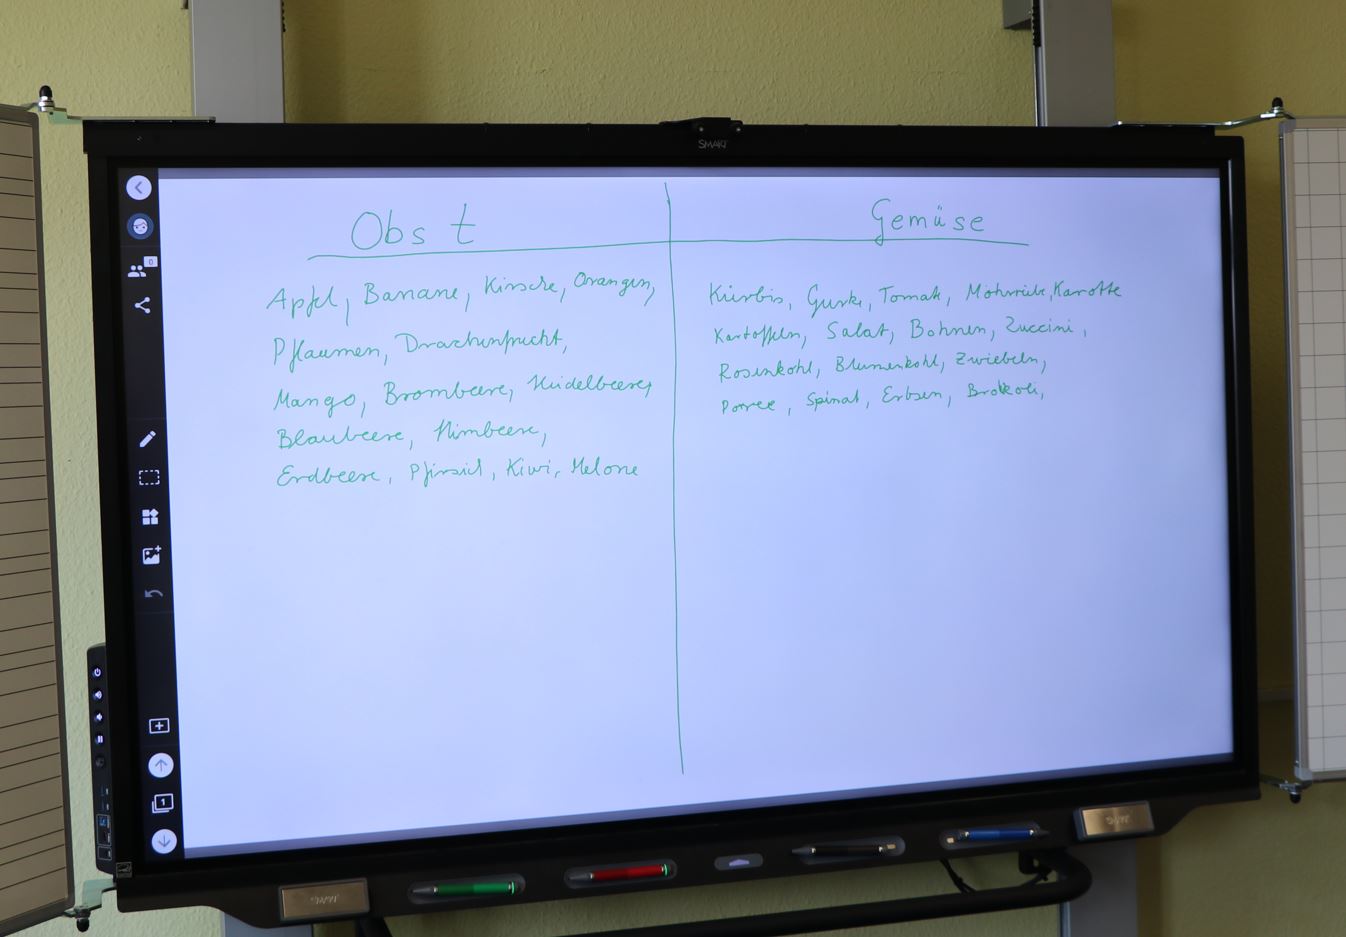 SMART
Obst
Gemüse
Apfel, Banane, Kirsche, Orangen,
Pflaumen, Drachenfrucht,
Mango, Brombeere, Heidelbeere,
Blaubeere, Himbeere,
Erdbeere, Pfirsich, Kiwi, Melone
Kürbis, Gurke, Tomate, Mohrrübe, Karotte
Kartoffeln, Salat, Bohnen, Zuccini,
Rosenkohl, Blumenkohl, Zwiebeln,
Porree, Spinat, Erbsen, Brokkoli,
0
1
SMART
SMART